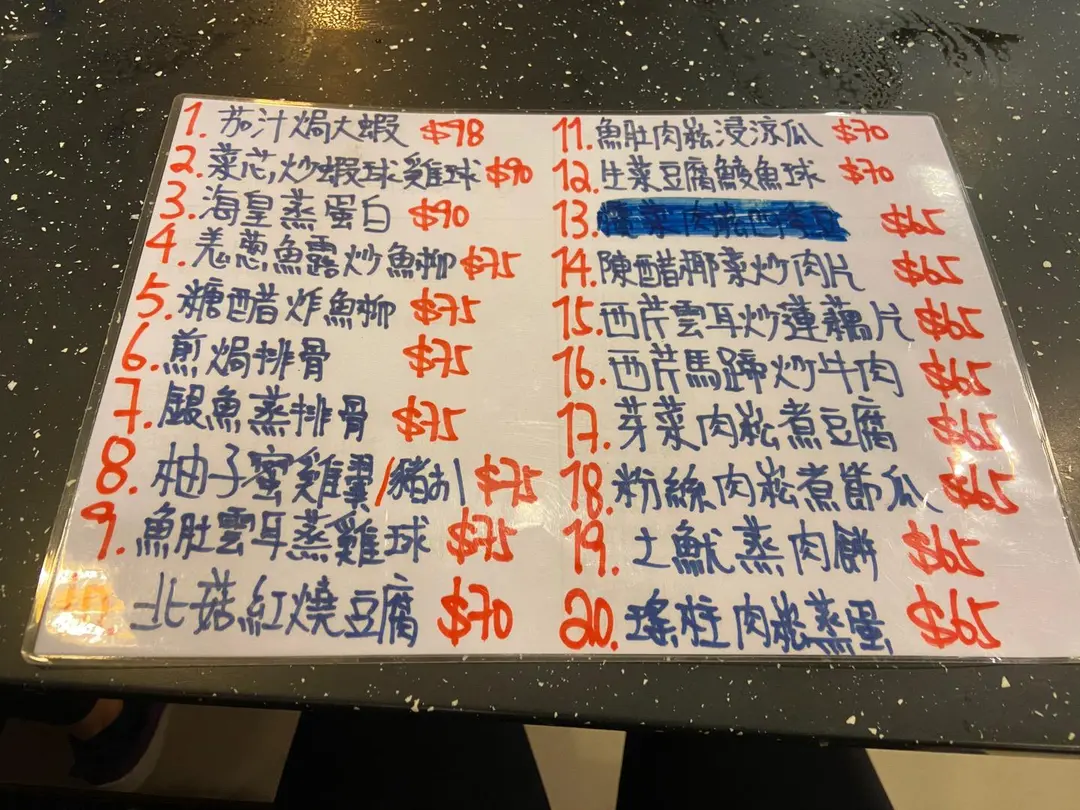 1. 茄汁焗大蝦 $98
2. 菜芯炒蝦球雞球 $90
3. 海皇蒸蛋白 $90
4. 羗蔥魚露炒魚柳 $75
5. 糖醋炸魚柳 $75
6. 煎焗排骨 $75
7. 鯷魚蒸排骨 $75
8. 柚子蜜雞翼/豬扒 $75
9. 魚肚雲耳蒸雞球 $75
10. 北菇紅燒豆腐 $70
11. 魚肚肉崧浸涼瓜 $70
12. 生菜豆腐鯪魚球 $70
13. $65
14. 陳醋椰菜炒肉片 $65
15. 西芹雲耳炒蓮藕片 $65
16. 西芹馬蹄炒牛肉 $65
17. 芽菜肉崧煮豆腐 $65
18. 粉絲肉崧煮節瓜 $65
19. 土魷蒸肉餅 $65
20. 瑤柱肉崧蒸蛋 $65